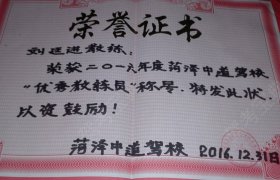 荣誉证书
刘廷进教练：
荣获二〇一六年度菏泽中道驾校
“优秀教练员”称号，特发此状，
以资鼓励！
菏泽中道驾校 2016.12.31日